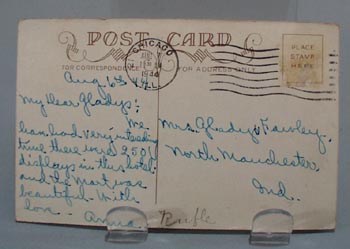 POST CARD
FOR CORRESPONDENCE
FOR ADDRESS ONLY
CHICAGO
PLACE
STAMP
HERE
My Dear Gladys:
We
have had very interesting
time there were 250
displays in this hotel
and the Mart was
beautiful. With
love Anna
Mrs. Gladys Fawley
North Manchester
Ind.